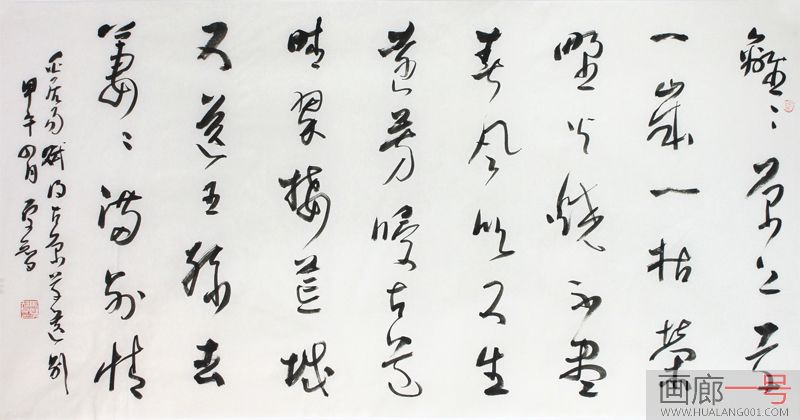 離〻原上草
一歲一枯榮
野火燒不盡
春風吹又生
遠芳侵古道
晴翠接荒城
又送王孫去
萋〻滿別情
白居易賦得古原草送別
甲午四月
画廊一号
WWW.HUALANG001.COM